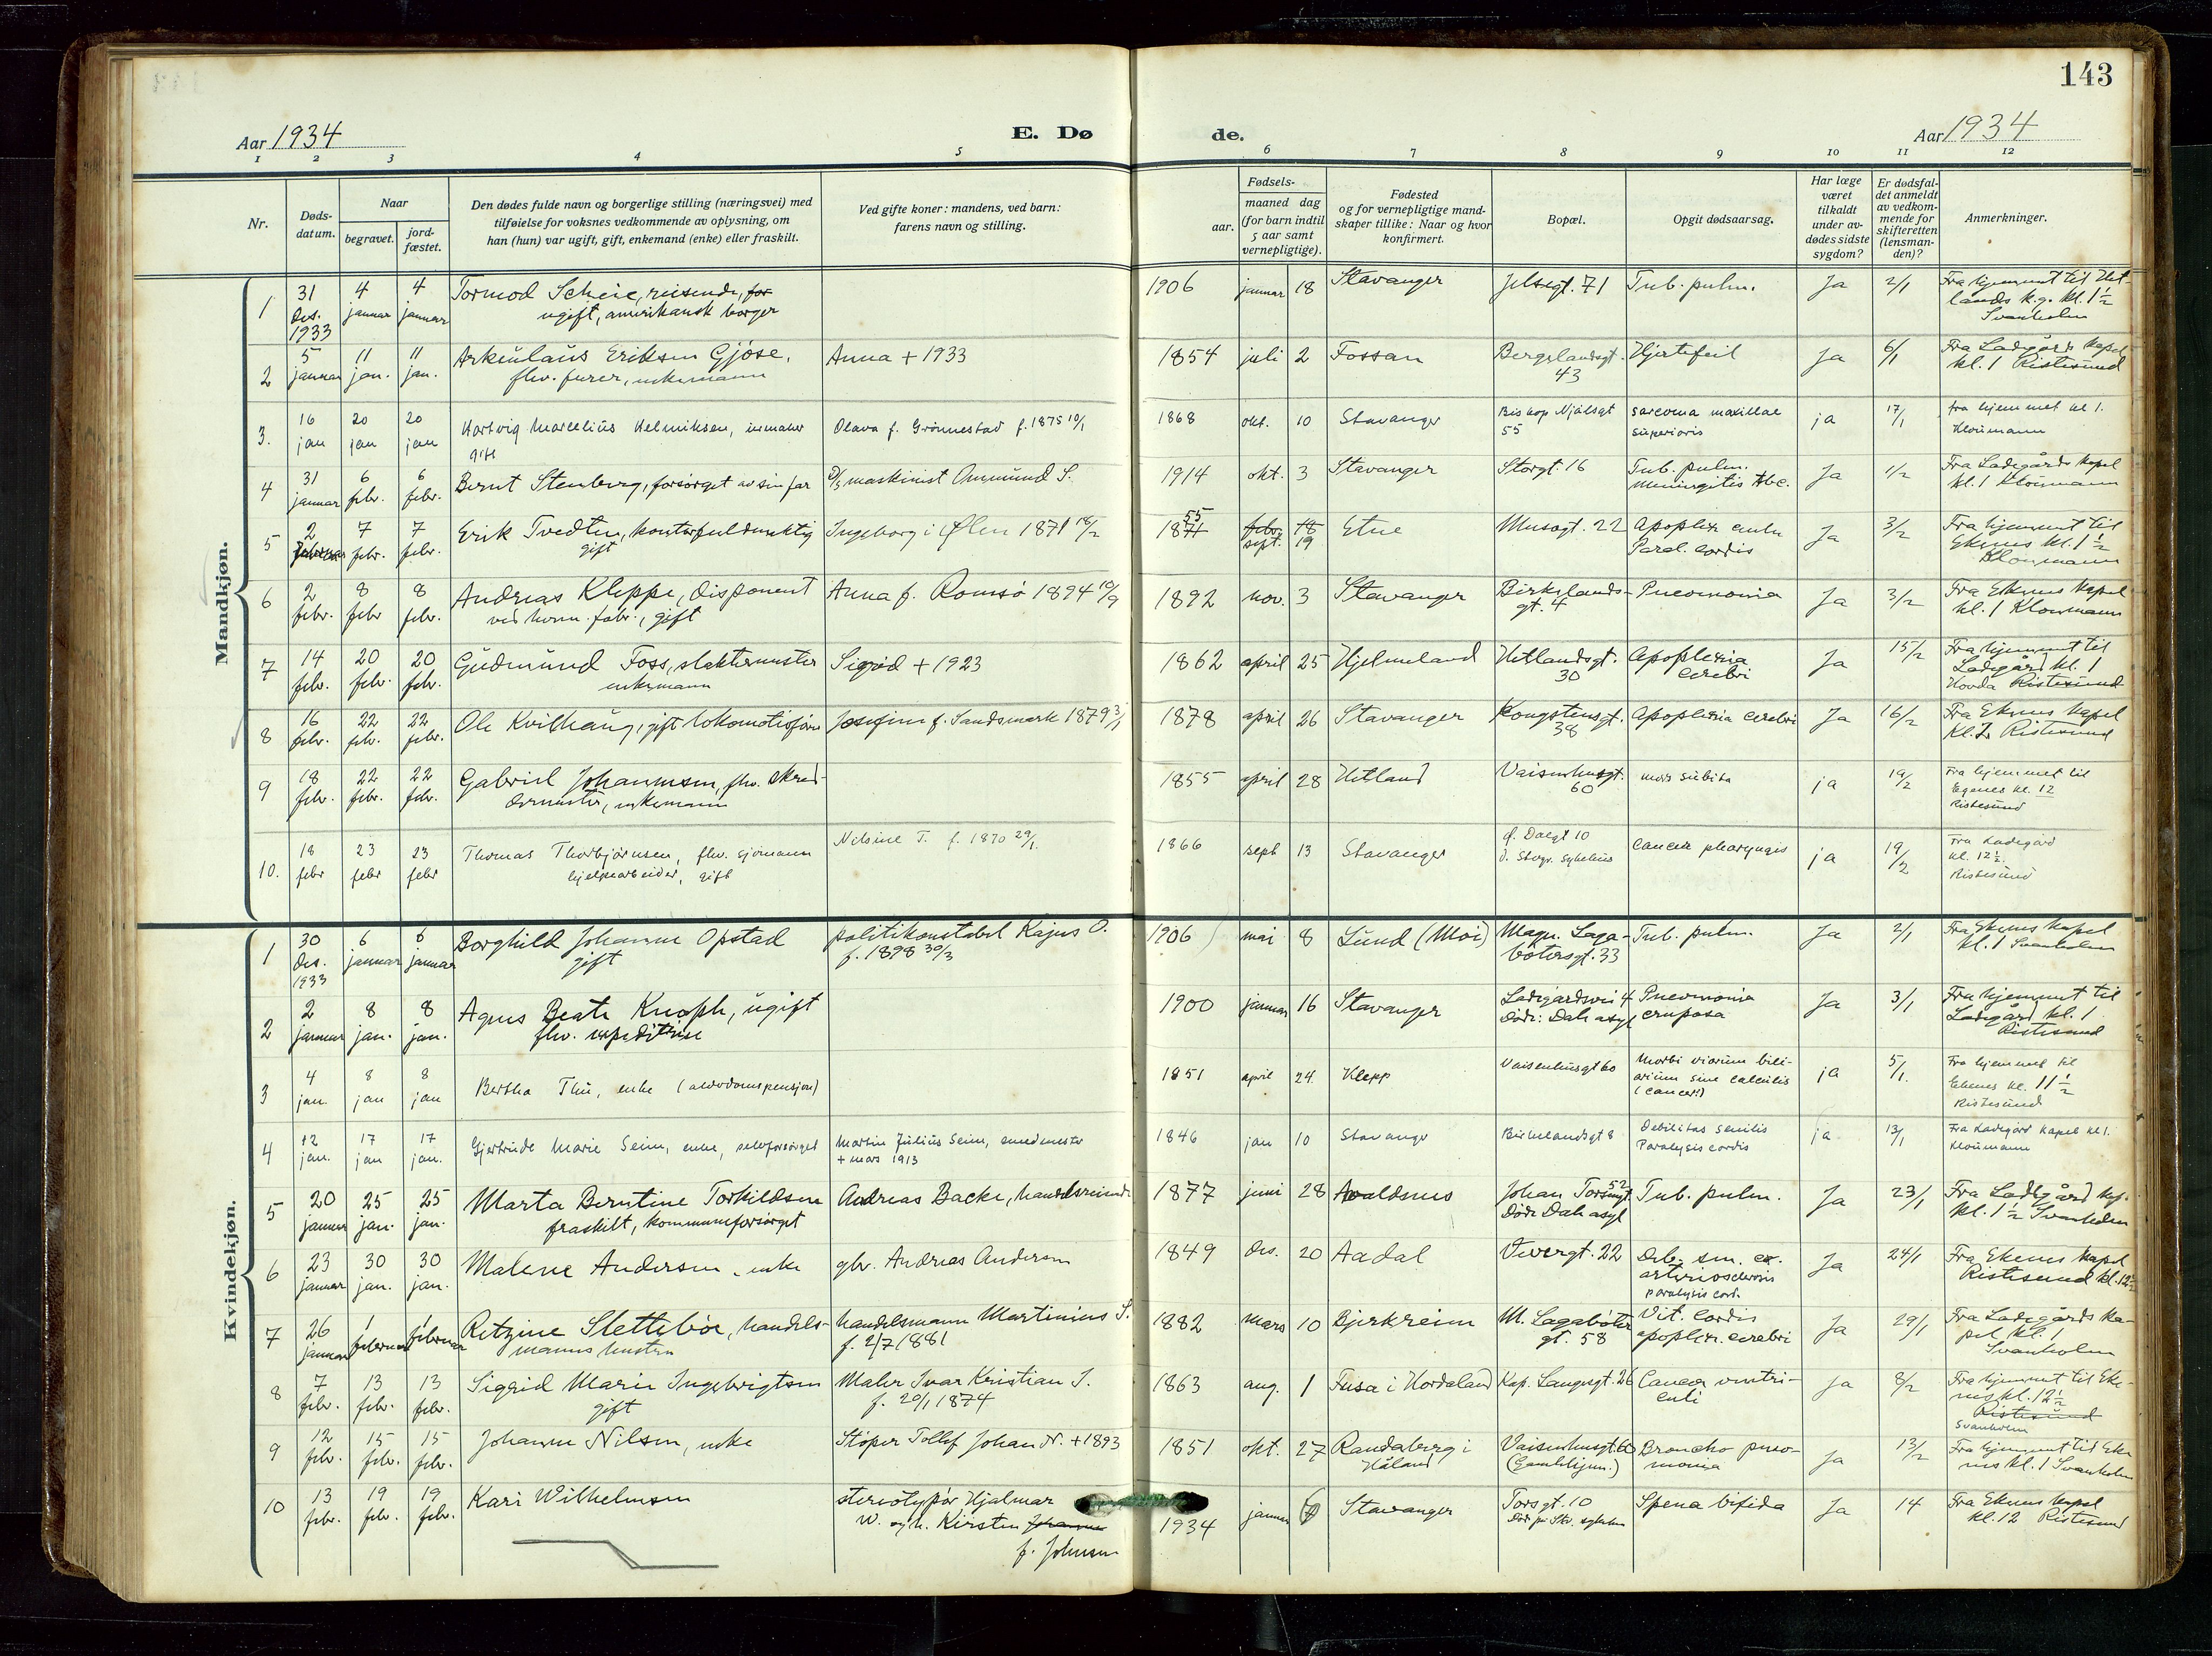 143
Aar 1934
E. Dø
de.
Aar 1934
1 2 3 4 5 6 7 8 9 10 11 12
Nr.
Døds-
datum.
Naar
begravet.
jord-
fæstet.
Den dødes fulde navn og borgerlige stilling (næringsvei) med
tilføielse for voksnes vedkommende av oplysning, om
han (hun) var ugift, gift, enkemand (enke) eller fraskilt.
Ved gifte koner: mandens, ved barn:
farens navn og stilling.
aar.
Fødsels-
maaned dag
(for barn indtil
5 aar samt
vernepligtige).
Fødested
og for vernepligtige mand-
skaper tillike: Naar og hvor
konfirmert.
Bopæl.
Opgit dødsaarsag.
Har læge
været
tilkaldt
under av-
dødes sidste
sygdom?
Er dødsfal-
det anmeldt
av vedkom-
mende for
skifteretten
(lensman-
den)?
Anmerkninger.
Mandkjøn.
1 31 des. 1933 4 januar 4 januar
Tormod Scheie, reisende, for
ugift, amerikansk borger
1906 januar 18 Stavanger Jelsegt. 71 Tub. pulm. Ja 2/1
Fra hjemmet til Het-
lands k.g. kl. 1½
Svanholm
2 5 januar 11 jan. 11 jan.
Arkeulaus Eriksen Gjøse,
flv. furer, enkemann
Anna + 1933
1854 juli 2 Fossan Bergelandsgt. 43 Hjertefeil Ja 6/1
Fra Ladegårds kapel
kl. 1 Ristesund
3. 16 jan 20 jan 20 jan
Hartvig Marcelius Helmiksen,
gift
Olava f. Grønnestad f. 1875 10/1
1868 okt. 10 Stavanger Biskop Njålsgt 55
sarcoma maxillae
superioris
ja 17/1
fra hjemmet kl 1.
Kloumann
4 31 januar 6 febr. 6 febr.
Bernt Stenberg, forsørget av sin far
D/s maskinist Ommund S.
1914 okt. 3 Stavanger Storgt. 16
Tub. pulm.
meningitis tbc.
Ja 1/2
Fra Ladegårds kapel
kl. 1 Kloumann
5 2 februar 7 febr. 7 febr.
Erik Tvedten, kontorfuldmektig
gift
Ingeborg i Ølen 1871 18/2
1871 55 febr. 18 sept. 19 Etne Musegt. 22
Paral. cordis
Ja 3/2
Fra hjemmet til
Ekenes kl. 1½
Kloumann
6 2 febr. 8 febr 8 febr.
Andreas Kleppe, disponent
ved herm. fabr., gift
Anna f. Romsø 1894 10/9
1892 nov. 3 Stavanger
Birkelands-
gt. 4
Pneomonia Ja 3/2
Fra Ekenes kapel
kl. 1 Kloumann
7 14 febr. 20 febr. 20 febr.
Gudmund Foss, slaktermester
enkemann
Sigrid + 1923
1862 april 25 Hjelmeland Hetlandsgt. 30
Apoplexia
cerebri
Ja 15/2
Fra hjemmet til
Ladegård kl. 1
Hovda Ristesund
8 16 febr. 22 febr. 22 febr.
Ole Kvithaug, gift lokomotivfører
Josefine f. Sandsmark 1879 3/1
1878 april 26 Stavanger Kongstensgt. 38 Apoplexia cerebri Ja 16/2
Fra Ekenes kapel
Kl. 2 Ristesund
9 18 febr. 22 febr. 22 febr.
Gabriel Johannesen, flv. skred-
dermester, enkemann
1855 april 28 Hetland Vaisenhusgt. 60 mors subita ja 19/2
Fra hjemmet til
Egenes kl. 12
Ristesund
10. 18 febr 23 febr 23 febr
Thomas Thorbjørnsen, flv. sjømann
hjelpearbeider, gift
Nilsine T. f. 1870 29/1.
1866 sept 13 Stavanger
Ø. Dalgt 10
d. Stvgr. sykehus
cancer pharyngis ja 19/2
Fra Ladegård
kl. 12½.
Ristesund
Kvindekjøn.
1 30 des. 1933 6 januar 6 januar
Borghild Johanne Opstad
gift
politikonstabel Kajus O.
f. 1898 30/3
1906 mai 8 Lund (Moi)
Magn. Laga-
bøtersgt. 33
Tub. pulm. Ja 2/1
Fra Ekenes kapel
kl. 1 Svanholm
2 2 januar 8 jan. 8 jan.
Agnes Beate Knoph, ugift
flv. expeditrise
1900 januar 16 Stavanger
Ladegårdsvei 4
Død: Dale asyl
Pneomonia
cruposa
Ja 3/1
Fra hjemmet til
Ladegård kl. 1
Ristesund
3 4 jan. 8 jan 8 jan
Bertha Thu, enke (alderdomspensjon)
1851 april 24. Klepp Vaisenhusgt 60
Morbi viarum bili-
arium sine calculis
(cancer?)
ja 5/1.
Fra hjemmet til
Ekenes kl. 11½
Ristesund
4 12 jan. 17 jan 17 jan.
Gjertrude Marie Seim, enke, selvforsørget
Martin Julius Seim, smedmester
+ mars 1913
1846 jan 10 Stavanger Birkelandsgt 8
Debilitas senilis
Paralysis cordis
ja 13/1
Fra Ladegård kapel kl 1.
Kloumann
5 20 januar 25 jan. 25 jan.
Marta Berntine Torkildsen
fraskilt, kommuneforsørget
Andreas Backe, handelsreisende
1877 juni 28 Avaldsnes
Johan Torsøgt. 52
Død: Dale asyl
Tub. pulm. Ja 23/1
Fra Ladegård kap.
kl. 1½ Svanholm
6 23 januar 30 jan. 30 jan.
Malene Andersen, enke
gbr. Andreas Andersen
1849 des. 20 Aadal Vevergt. 22
Deb. sen. ex.
arteriosclerosis
paralysis cord.
Ja 24/1
Fra Ekenes kapel
Ristesund kl. 12½
7 26 januar 1 februar 1 februar
Retzine Slettebøe, handels-
manns hustru
handelsmann Martinius S.
f. 2/7 1881
1882 mars 10 Bjerkreim
M. Lagabøter
gt. 58
Vit. cordis
apoplex. cerebri
Ja 29/1
Fra Ladegårds ka-
pel kl. 1
Svanholm
8 7 febr. 13 febr. 13 febr.
Sigrid Marie Ingebrigtsen
gift
Maler Ivar Kristian I.
f. 20/1 1874
1863 aug. 1 Fusa i Hordaland Kap. Langesgt. 26
Cancer ventri-
culi
Ja 8/2
Fra hjemmet til Eke-
nes kl. 12½
Ristesund
Svanholm
9 12 febr. 15 febr. 15 febr.
Johanne Nilsen, enke
Støper Tollef Johan N. + 1893
1851 okt. 27
Randaberg i
Håland
Vaisenhusgt. 60
(Gamlehjem.)
Broncho pneo-
monia
Ja 13/2
Fra hjemmet til Eke
nes kl. 1 Svanholm
10 13 febr. 19 febr. 19 febr.
Kari Wilhelmsen
stereotypør Hjalmar
W. og h. Kirsten Johanne
f. Johnsen
1934 januar Stavanger
Torsgt. 10
Død på Stv. sykehus
Spena bifida Ja 14
Fra Ekenes kapel
kl. 12 Ristesund